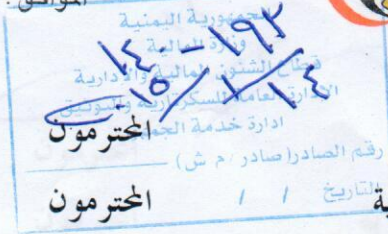 الموافق:
الجمهورية اليمنية
وزارة المالية
قطاع الشئون المالية والإدارية
الإدارة العامة للسكرتارية والتوثيق
ادارة خدمة الجمهور
رقم الصادر (صادر / م ش)
التاريخ / /
١٩٣ - ١٤٠
المحترمون
المحترمون